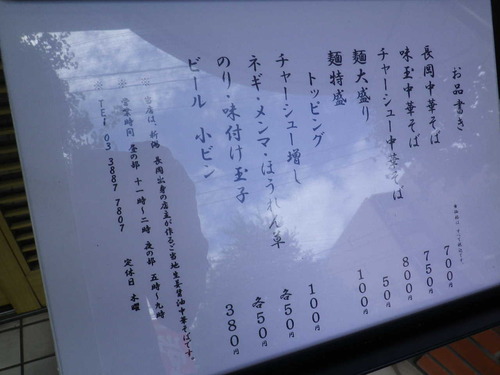 お品書き
長岡中華そば 700円
味玉中華そば 750円
チャーシュー中華そば 800円
麺大盛り 50円
麺特盛 100円
トッピング
チャーシュー増し 100円
ネギ・メンマ・ほうれん草 各50円
のり・味付け玉子 各50円
ビール 小ビン 380円
※当店は、新潟 長岡出身の店主が作るご当地生姜醤油中華そばです。
※営業時間 昼の部 十一時〜二時 夜の部 五時〜九時
※定休日 水曜
TEL 03 3887 7807